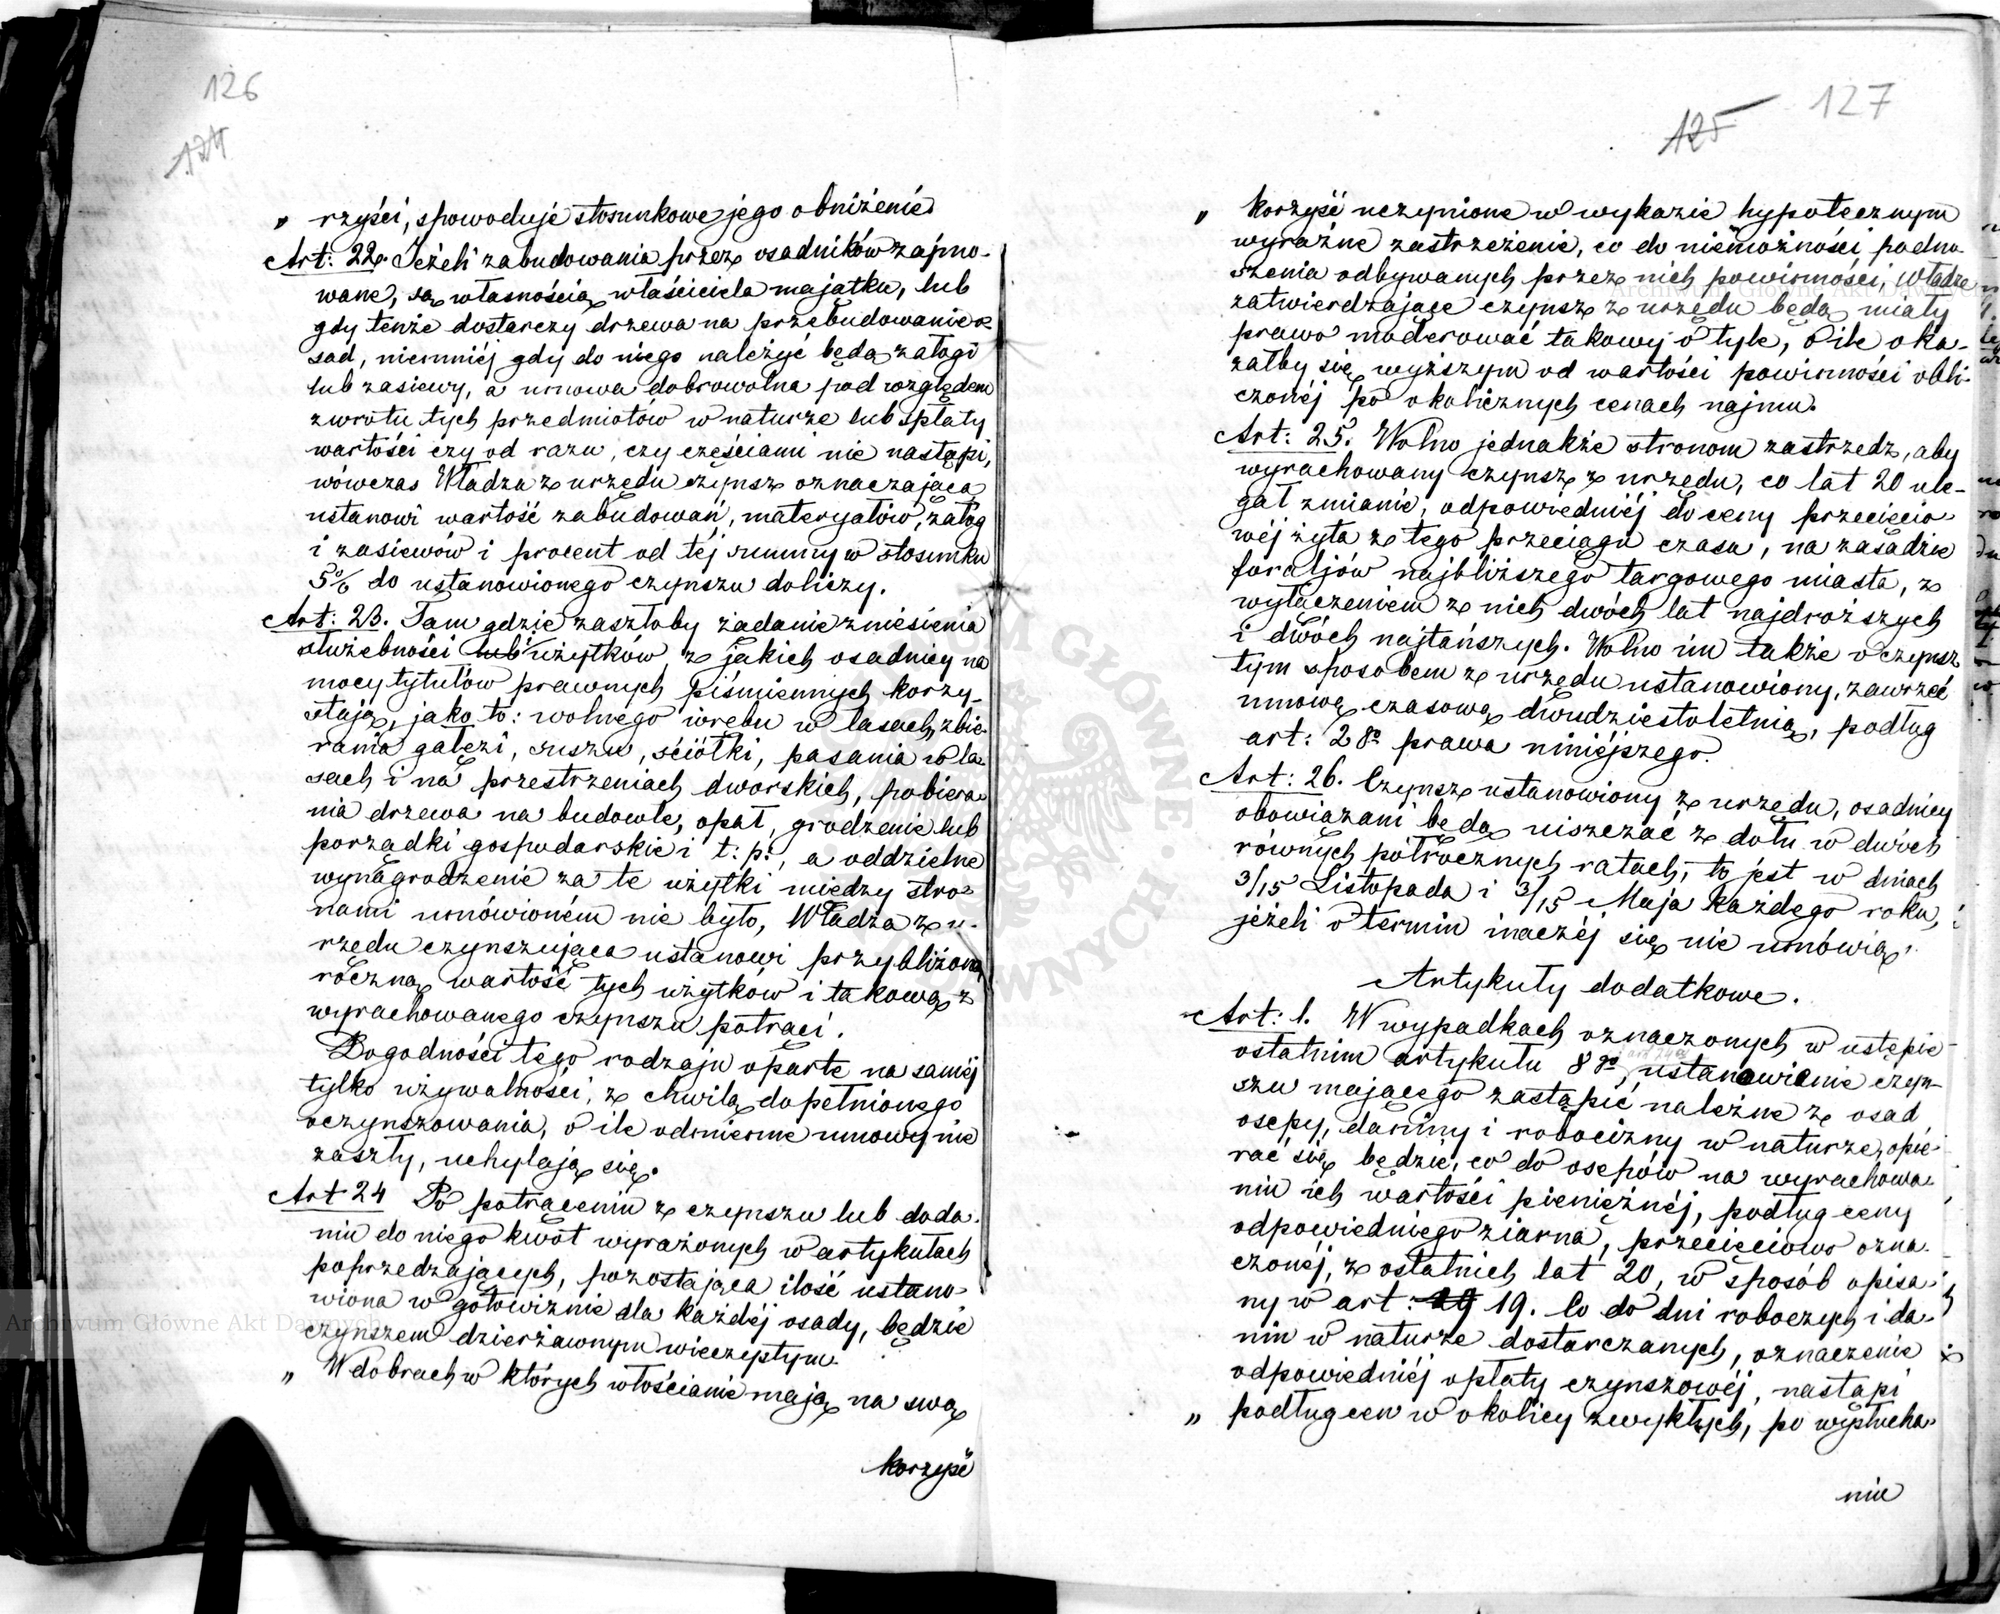 126
124
„ rzyści, spowoduje stosunkowe jego obniżenie.
Art: 22. Jeżeli zabudowania przez osadników zajmo-
wane, są własnością właściciela majątku, lub
gdy tenże dostarczy drzewa na przebudowanie o-
sad, niemniéj gdy do niego należyć będą załogi
lub zasiewy, a umowa dobrowolna pod względem
zwrotu tych przedmiotów w naturze lub spłaty
wartości czy od razu, czy częściami nie nastąpi,
wówczas Władza z urzędu czynsz oznaczająca
ustanowi wartość zabudowań, materyałów, załóg
i zasiewów i procent od téj summy w stosunku
5% do ustanowionego czynszu doliczy.
Art: 23. Tam gdzie zaszłoby żądanie zniesienia
służebności lub użytków z jakich osadnicy na
mocy tytułów prawnych piśmiennych korzy-
stają, jako to: wolnego wrębu w lasach, zbie-
rania gałęzi, suszu, ściółki, pasania w la-
sach i na przestrzeniach dworskich, pobiera-
nia drzewa na budowle, opał, grodzenie lub
porządki gospodarskie i t: p:, a oddzielne
wynagrodzenie za te użytki między stro-
nami umówioném nie było, Władza z u-
rzędu czynszująca ustanowi przybliżoną
roczną wartość tych użytków i takową z
wyrachowanego czynszu potrąci.
Dogodności tego rodzaju oparte na saméj
tylko używalności, z chwilą dopełnionego
oczynszowania, o ile odmienne umowy nie
zaszły, uchylają się.
Art 24 Po potrąceniu z czynszu lub doda-
niu do niego kwot wyrażonych w artykułach
poprzedzających, pozostająca ilość ustano-
wiona w gotowiznie dla każdéj osady, będzie
czynszem dzierżawnym wieczystym.
„ W dobrach w których włościanie mają na swą
korzyść
127
125
„ korzyść uczynione w wykazie hypotecznym
wyraźne zastrzeżenie, co do niemożności podno-
szenia odbywanych przez nich powinności, Władze
zatwierdzające czynsz z urzędu będą miały
prawo moderować takowy o tyle, o ile oka-
załby się wyższym od wartości powinności obli-
czonéj po okolicznych cenach najmu.
Art: 25. Wolno jednakże stronom zastrzedz, aby
wyrachowany czynsz z urzędu, co lat 20 ule-
gał zmianie, odpowiedniéj do ceny przecięcio-
wéj żyta z tego przeciągu czasu, na zasadzie
foraljów najbliższego targowego miasta, z
wyłączeniem z nich dwóch lat najdroższych
i dwóch najtańszych. Wolno im także o czynsz
tym sposobem z urzędu ustanowiony, zawrzeć
umowę czasową dwudziestoletnią, podług
art: 28º prawa niniéjszego.
Art: 26. Czynsz ustanowiony z urzędu, osadnicy
obowiązani będą uiszczać z dołu w dwóch
równych półrocznych ratach, to jest w dniach
3/15 Listopada i 3/15 Maja każdego roku,
jeżeli o termin inaczéj się nie umówią.
Artykuły dodatkowe.
Art: 1. W wypadkach oznaczonych w ustępie
ostatnim artykułu 8go, ustanowienie czyn-
szu mającego zastąpić należne z osad
osepy, daniny i robocizny w naturze, opie-
rać się będzie, co do osepów na wyrachowa-
niu ich wartości pieniężnéj, podług ceny
odpowiedniego ziarna, przecięciowo ozna-
czonéj, z ostatnich lat 20, w sposób opisa-
ny w art: 19. Co do dni roboczych i da-
nin w naturze dostarczanych, oznaczenie
odpowiedniéj opłaty czynszowéj, nastąpi
„ podług cen w okolicy zwykłych, po wysłucha-
niu
Archiwum Główne Akt Dawnych